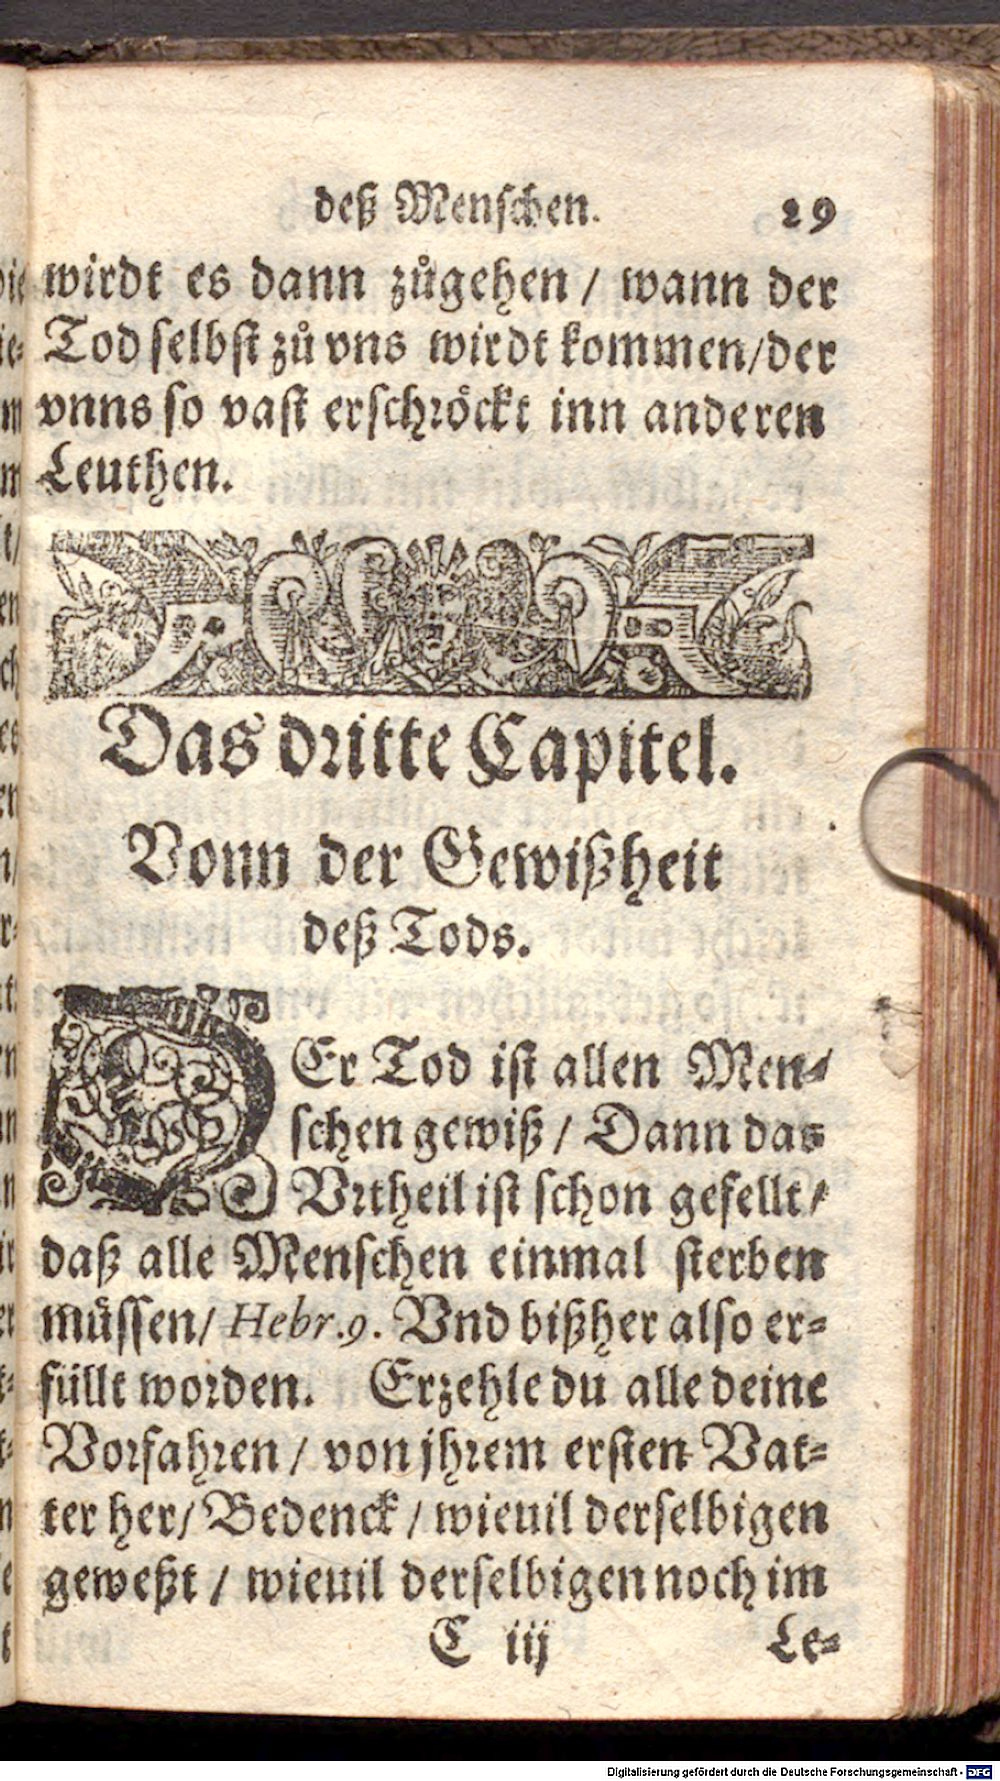 deß Menschen. 29
wirdt es dann zůgehen / wann der
Tod selbst zů vns wirdt kommen/der
vnns so vast erschröckt inn anderen
Leuthen.
Das dritte Capitel.
Vonn der Gewißheit
deß Tods.
DEr Tod ist allen Men-
schen gewiß / Dann das
Vrtheil ist schon gefellt /
daß alle Menschen einmal sterben
müssen/ Hebr. 9. Vnd bißher also er-
füllt worden. Erzehle du alle deine
Vorfahren / von jhrem ersten Vat-
ter her/ Bedenck / wieuil derselbigen
geweßt / wieuil derselbigen noch im
C iij Le-
Digitalisierung gefördert durch die Deutsche Forschungsgemeinschaft - DFG